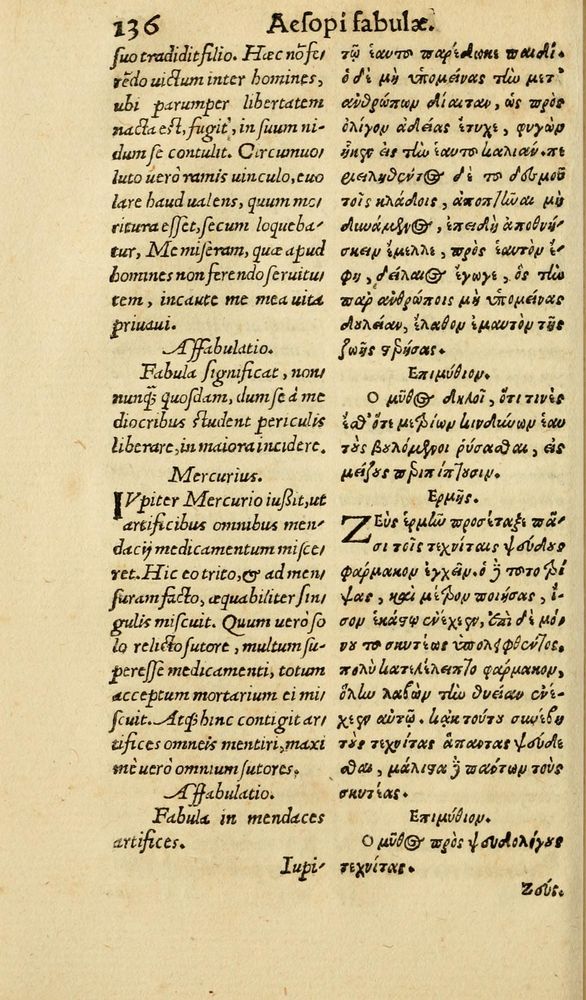 136 Aesopi fabulæ.
suo tradidit filio. Hæc nõ fe⸗
rēdo uictum inter homines,
ubi parumper libertatem
nacta est, fugit, in suum ni⸗
dum se contulit. Circumuo⸗
luto uerò ramis uinculo, euo
lare haud ualens, quum mo⸗
ritura esset, secum loqueba⸗
tur, Me miseram, quæ apud
homines non ferendo seruitu⸗
tem, incaute me mea uita
priuaui.
Affabulatio.
Fabula significat, non⸗
nunq̃ quosdam, dum se à me
diocribus student periculis
liberare, in maiora incidere.
Mercurius.
IVpiter Mercurio iußit, ut
artificibus omnibus men⸗
dacij medicamentum misce⸗
ret. Hic eo trito, & ad men⸗
suram facto, æquabiliter sin⸗
gulis miscuit. Quum uerò so
lo relicto sutore, multum su⸗
peresse medicamenti, totum
acceptum mortarium ei mi⸗
scuit. Atq́ hinc contigit ar⸗
tifices omneis mentiri, maxi
mè uerò omnium sutores.
Affabulatio.
Fabula in mendaces
artifices.
Iupi⸗
τῷ ἑαυτοῦ παρέδωκε παιδί.
ὁ δὲ μὴ ὑπομείνας τὴν μετ'
ἀνθρώπων δίαιταν, ὡς πρὸς
ὀλίγον ἀδείας ἔτυχε, φυγὼν
ἧκεν εἰς τὴν ἑαυτοῦ καλιάν. πε
ριειληθέντος δὲ τοῦ δεσμοῦ
τοῖς κλάδοις, ἀποπτῆναι μὴ
δυνάμενος, ἐπειδὴ ἀποθνή⸗
σκειν ἔμελλε, πρὸς ἑαυτὸν ἔ⸗
φη, δείλαιος ἔγωγε, ὃς τὴν
παρ ἀνθρώποις μὴ ὑπομείνας
δουλείαν, ἔλαθον ἐμαυτὸν τῆς
ζωῆς στερήσας.
Επιμύθιον.
Ο μῦθος δηλοῖ, ὅτι τινὲς
ἔσθ' ὅτε μετρίων κινδύνων ἑαυ
τοὺς βουλόμενοι ῥύσασθαι, εἰς
μείζους περιπίπτουσιν.
Ερμῆς.
ΖΕὺς ἑρμῇ προσέταξε πᾶ⸗
σι τοῖς τεχνίταις ψεύδους
φάρμακον ἐγχεῖν. ὁ δὲ τοῦτο τρί
ψας, καὶ μέτρον ποιήσας, ἴ⸗
σον ἑκάστῳ ἐνέχεεν, ἐπεὶ δὲ μό⸗
νου τοῦ σκυτέως ὑπολειφθέντος,
πολὺ κατελέλειπτο φάρμακον,
ὅλην λαβὼν τὴν θυείαν ἐνέ⸗
χεεν αὐτῷ. κἀκ τούτου συνέβη
τοὺς τεχνίτας ἅπαντας ψεύδε
σθαι, μάλιστα δὲ πάντων τοὺς
σκυτέας.
Επιμύθιον.
Ο μῦθος πρὸς ψευδολόγους
τεχνίτας.
Ζεύς.